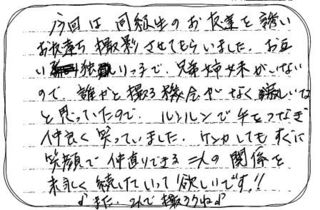 今回は同級生のお友達を誘い
お友達も撮影させてもらいました。お互
い独りっ子で、兄弟姉妹がいない
ので、誰かと撮る機会がなく、嬉しいな
と思っていたので、ルンルンで手をつなぎ
仲良く笑っていました。ケンカしてもすぐに
笑顔で仲直りできる二人の関係を
末永く続けていって欲しいです!!
♪また、2人で撮ろうね♪